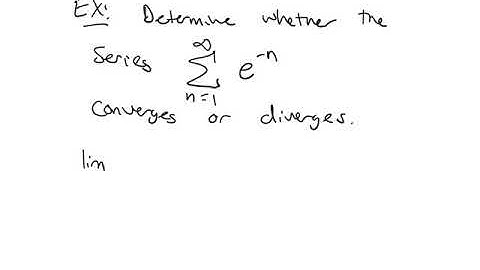 EX: Determine whether the
Series ∑_{n=1}^{∞} e^{-n}
Converges or diverges.
lim